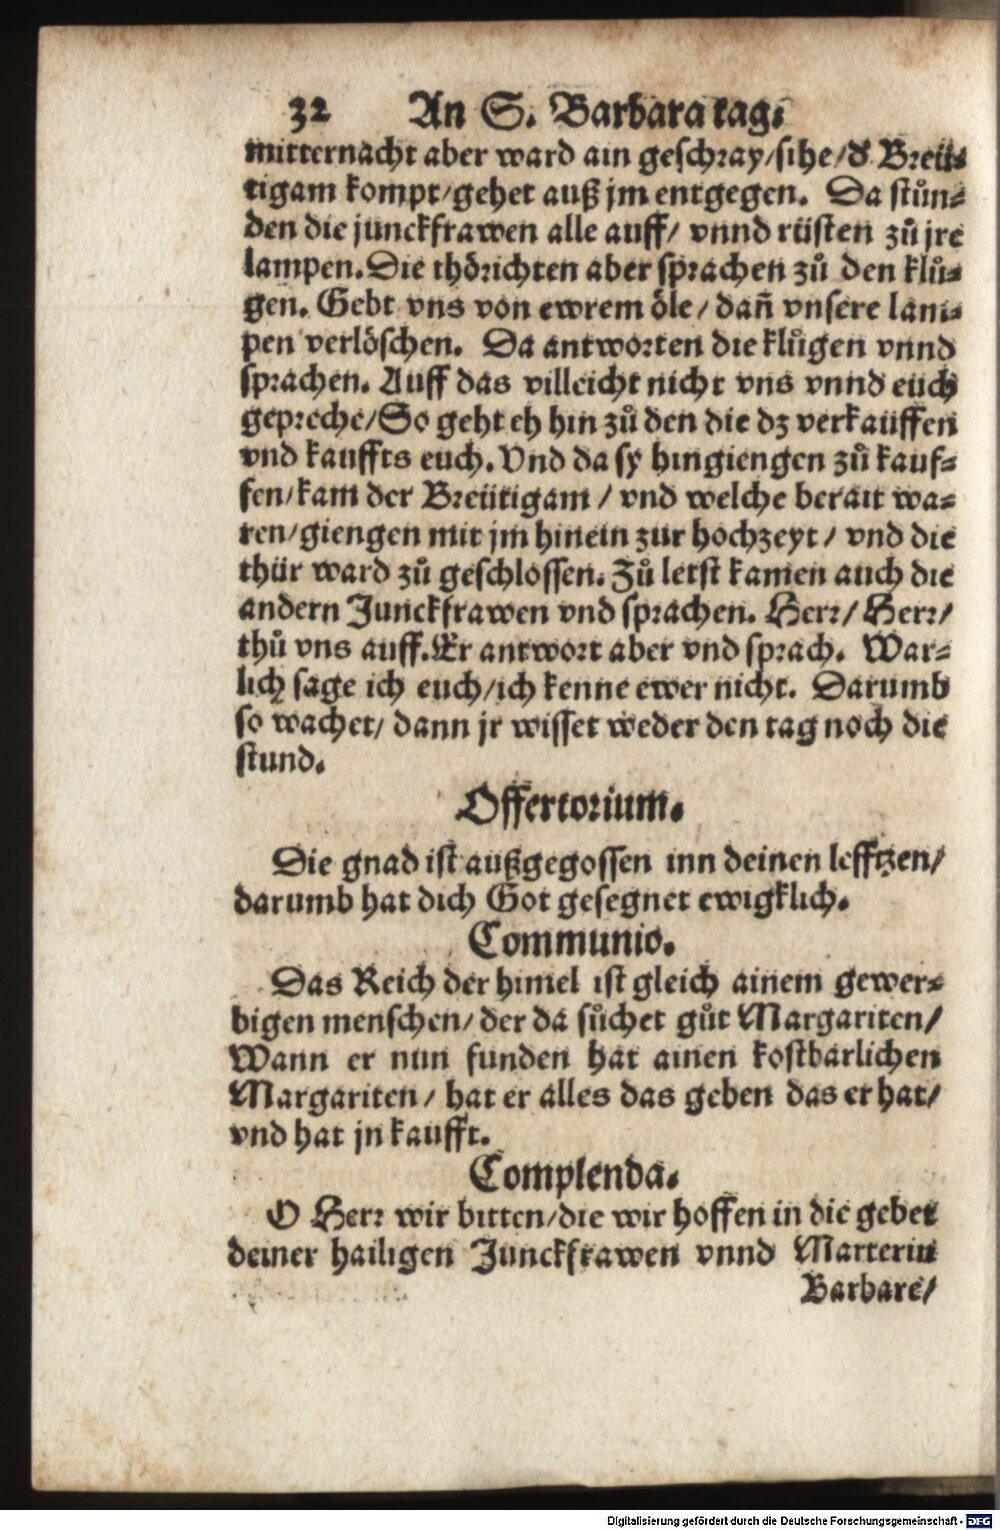 32 An S. Barbara tag.
mitternacht aber ward ain geschray/sihe/d' Breü⸗
tigam kompt/gehet auß jm entgegen. Da stůn⸗
den die junckfrawen alle auff/ vnnd rüsten zů jre
lampen. Die thörichten aber sprachen zů den klů⸗
gen. Gebt vns von ewrem öle/ dañ vnsere lam⸗
pen verlöschen. Da antworten die klůgen vnnd
sprachen. Auff das villeicht nicht vns vnnd euch
gepreche/So geht eh hin zů den die dz verkauffen
vnd kauffts euch. Vnd da sy hingiengen zů kauf⸗
fen/kam der Breütigam/ vnd welche berait wa⸗
ren/giengen mit jm hinein zur hochzeyt/ vnd die
thür ward zů geschlossen. Zů letst kamen auch die
andern Junckfrawen vnd sprachen. Herr/ Herr/
thů vns auff. Er antwort aber vnd sprach. War⸗
lich sage ich euch/ich kenne ewer nicht. Darumb
so wachet/ dann jr wisset weder den tag noch die
stund.
Offertorium.
Die gnad ist außgegossen inn deinen lefftzen/
darumb hat dich Got gesegnet ewigklich.
Communio.
Das Reich der himel ist gleich ainem gewer⸗
bigen menschen/ der da sůchet gůt Margariten/
Wann er nun funden hat ainen kostbarlichen
Margariten/ hat er alles das geben das er hat/
vnd hat jn kaufft.
Complenda.
O Herr wir bitten/die wir hoffen in die gebet
deiner hailigen Junckfrawen vnnd Marterin
Barbare/
Digitalisierung gefördert durch die Deutsche Forschungsgemeinschaft - DFG